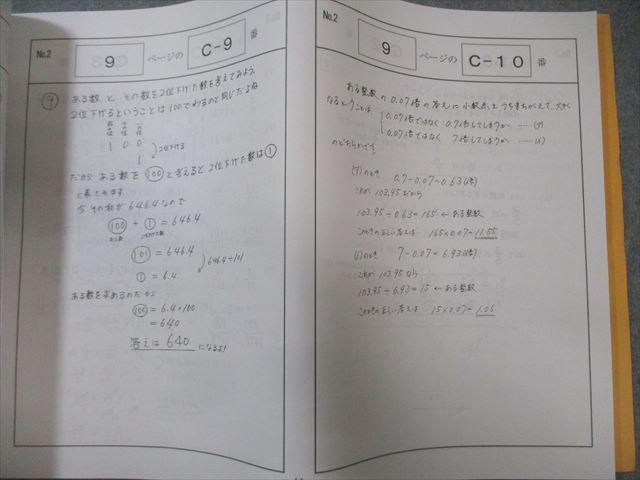 No.2
9 ページの C-9 番
⑨ ある数と その数を2位下げた数を考えてみよう。
2位下げるということは100でわるのと同じだよね
百の位 十の位 一の位
1 0 0
1
2位下げる
だから ある数を 100 と考えると 2位下げた数は ①
と表せます。
今 その和が 646.4 なので
100 + ① = 646.4
ある数 2位下げた数
101 = 646.4
① = 6.4
646.4÷101
ある数を求めるのだから
100 = 6.4×100
= 640
答えは 640 になるよ!
No.2
9 ページの C-10 番
ある整数の 0.07倍の答えに小数点をうちまちがえて、大きく
なるということは、
0.07倍ではなく 0.7倍してしまうか ……(ア)
0.07倍ではなく 7倍してしまうか ……(イ)
のどちらかです。
(ア)のとき 0.7-0.07=0.63(倍)
これが 103.95だから
103.95÷0.63=165 ← ある整数
このときの正しい答えは 165×0.07=11.55
(イ)のとき 7-0.07=6.93(倍)
これが 103.95なら
103.95÷6.93=15 ← ある整数
このときの正しい答えは 15×0.07=1.05